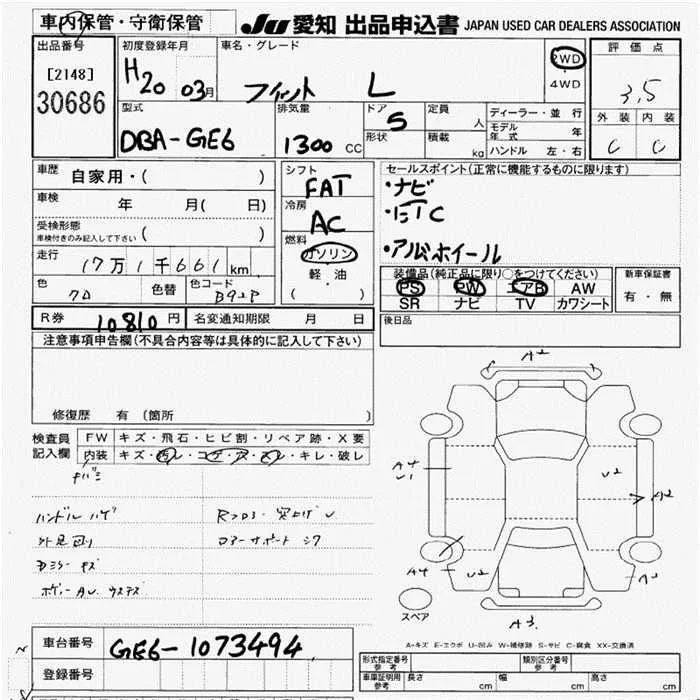 車内保管・守衛保管
JU 愛知 出品申込書 JAPAN USED CAR DEALERS ASSOCIATION
出品番号
[2148]
30686
初度登録年月
H20 03月
車名・グレード
フィット L
2WD
4WD
評価点
3.5
外装 内装
C C
型式
DBA-GE6
排気量
1300 CC
ドア
5
形状
定員
人
積載
kg
ディーラー・並行
モデル年式 年
ハンドル 左・右
車歴
自家用・( )
車検
年 月( 日)
受検形態
車検付きのみ記入して下さい ( )
走行
17万1千661km
色
クロ
色替
色コード
B92P
シフト
FAT
冷房
AC
燃料
ガソリン
軽・油
( )
セールスポイント(正常に機能するものに限ります)
・ナビ
・ETC
・アルミホイール
装備品(純正品に限り○をつけてください)
PS PW エアB AW
SR ナビ TV カワシート
新車保証書
有・無
R券 10810円
名変通知期限 月 日
後日品
注意事項申告欄(不具合内容等は具体的に記入して下さい)
修復歴 有 (箇所 )
検査員記入欄
FW キズ・飛石・ヒビ割・リペア跡・X要
内装 キズ・汚レ・コゲ・穴・スレ・キレ・破レ
ハンドル ハゲ
A2
A4
U1
U2
A2
A4
U2
A3
スペア
A-キズ E-エクボ U-凹み W-補修跡 S-サビ C-腐食 XX-交換済
車台番号
GE6-1073494
登録番号
形式指定番号 参考
類別区分番号 参考
車庫証明用 参考
長さ cm
幅 cm
高さ cm